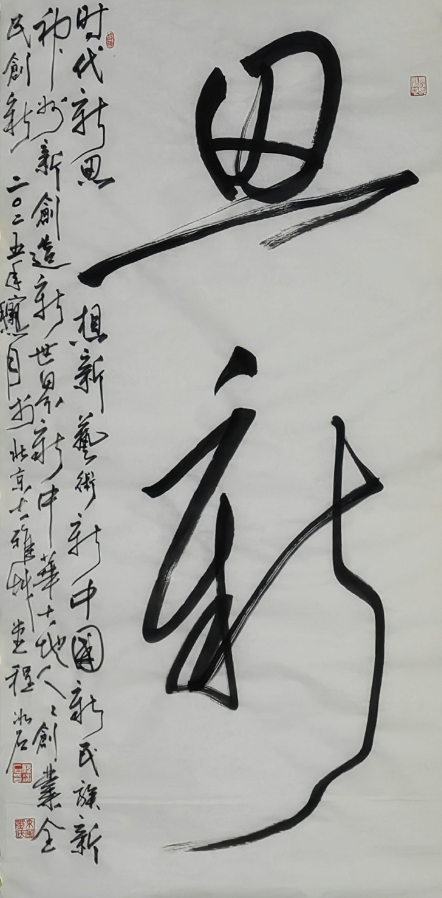 思新
时代新思想新藝術新中國新民族新
神州新創造新世界新中華大地人人創業全
民創新 二〇二五年臘月於北京大雅艸堂 程冰石